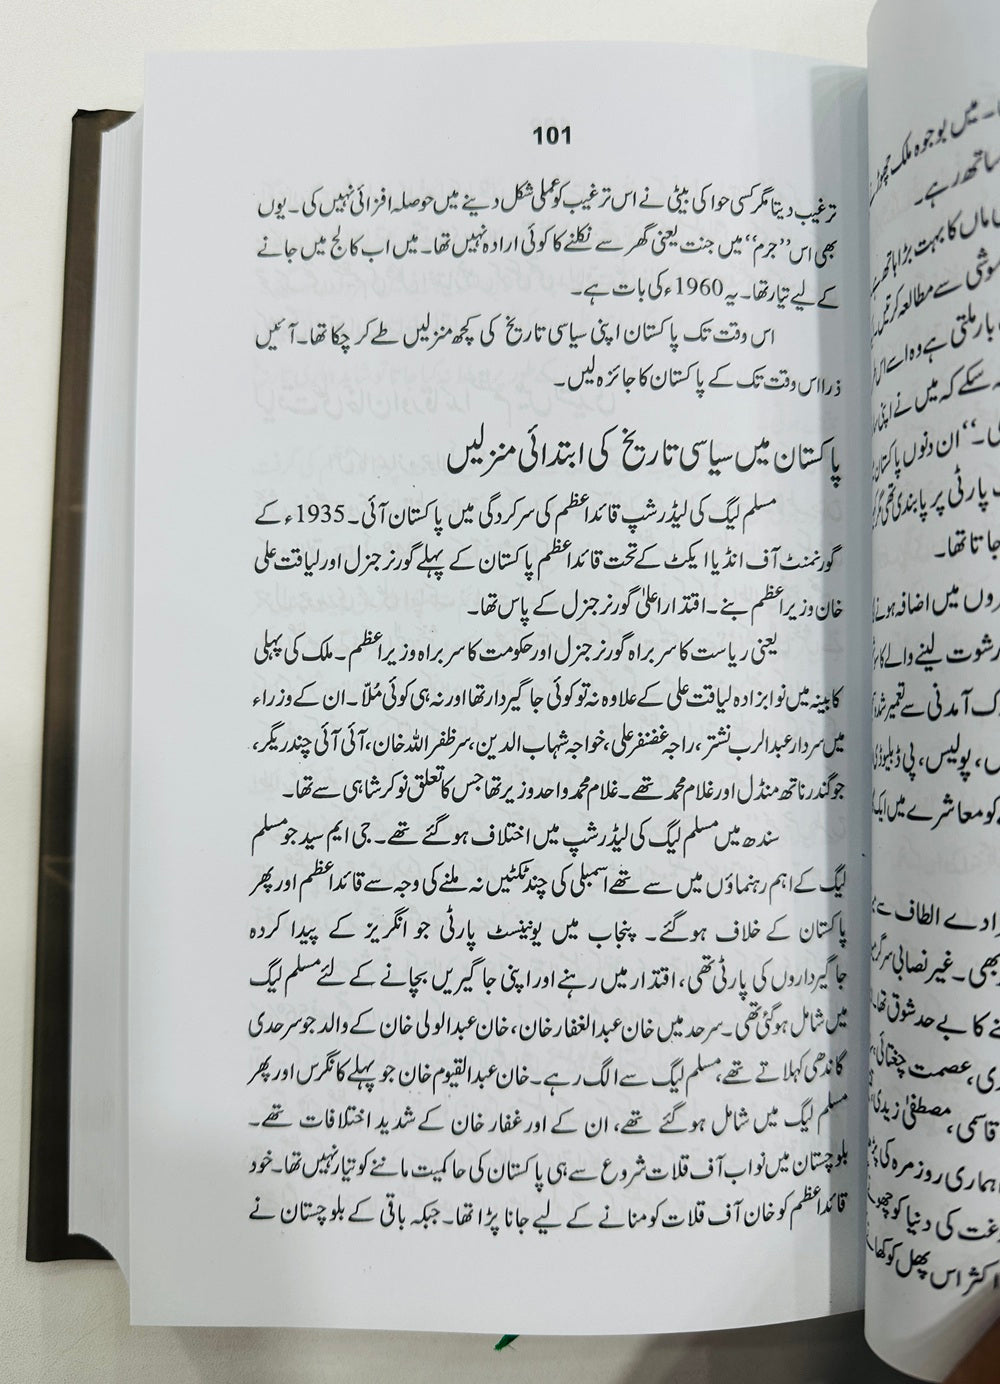 101
ترغیب دیتا مگر کسی حوا کی بیٹی نے اس ترغیب کو عملی شکل دینے میں حوصلہ افزائی نہیں کی۔ یوں
بھی اس ”جرم“ میں جنت یعنی گھر سے نکلنے کا کوئی ارادہ نہیں تھا۔ میں اب کالج میں جانے
کے لیے تیار تھا۔ یہ 1960ء کی بات ہے۔
اس وقت تک پاکستان اپنی سیاسی تاریخ کی کچھ منزلیں طے کر چکا تھا۔ آئیں
ذرا اس وقت تک کے پاکستان کا جائزہ لیں۔
پاکستان میں سیاسی تاریخ کی ابتدائی منزلیں
مسلم لیگ کی لیڈر شپ قائداعظم کی سرکردگی میں پاکستان آئی۔ 1935ء کے
گورنمنٹ آف انڈیا ایکٹ کے تحت قائداعظم پاکستان کے پہلے گورنر جنرل اور لیاقت علی
خان وزیراعظم بنے۔ اقتدار اعلیٰ گورنر جنرل کے پاس تھا۔
یعنی ریاست کا سربراہ گورنر جنرل اور حکومت کا سربراہ وزیراعظم۔ ملک کی پہلی
کابینہ میں نوابزادہ لیاقت علی کے علاوہ نہ تو کوئی جاگیردار تھا اور نہ ہی کوئی مُلّا۔ ان کے وزراء
میں سردار عبدالرب نشتر، راجہ غضنفر علی، خواجہ شہاب الدین، سر ظفر اللہ خان، آئی آئی چندریگر،
جوگندر ناتھ منڈل اور غلام محمد تھے۔ غلام محمد واحد وزیر تھا جس کا تعلق نوکر شاہی سے تھا۔
سندھ میں مسلم لیگ کی لیڈر شپ میں اختلاف ہو گئے تھے۔ جی ایم سید جو مسلم
لیگ کے اہم رہنماؤں میں سے تھے اسمبلی کی چند ٹکٹیں نہ ملنے کی وجہ سے قائداعظم اور پھر
پاکستان کے خلاف ہو گئے۔ پنجاب میں یونینسٹ پارٹی جو انگریز کے پیدا کردہ
جاگیرداروں کی پارٹی تھی، اقتدار میں رہنے اور اپنی جاگیریں بچانے کے لئے مسلم لیگ
میں شامل ہو گئی تھی۔ سرحد میں خان عبدالغفار خان، خان عبدالولی خان کے والد جو سرحدی
گاندھی کہلاتے تھے، مسلم لیگ سے الگ رہے۔ خان عبدالقیوم خان جو پہلے کانگرس اور پھر
مسلم لیگ میں شامل ہو گئے تھے، ان کے اور غفار خان کے شدید اختلافات تھے۔
بلوچستان میں نواب آف قلات شروع سے ہی پاکستان کی حاکمیت ماننے کو تیار نہیں تھا۔ خود
قائداعظم کو خان آف قلات کو منانے کے لیے جانا پڑا تھا۔ جبکہ باقی کے بلوچستان نے
میں بوجوہ ملک
ساتھ رہے۔
ماں کا بہت بڑا ہاتھ
سے مطالعہ
بار ملتی ہے وہ اسے اس
سکے کہ میں نے اپنی
۔“ ان دنوں پاکستان
پارٹی پر پابندی تھی
جاتا تھا۔
میں اضافہ ہونے
رشوت لینے والے کا
آمدنی سے تعمیر شدہ
، پولیس، پی ڈبلیو ڈی
کو معاشرے میں ایک
الطاف سے
بھی۔ غیر نصابی
کا بے حد شوق تھا۔
، عصمت چغتائی،
قاسمی، مصطفیٰ زیدی،
ہماری روز مرہ کی
کی دنیا کو
اکثر اس پھل کو